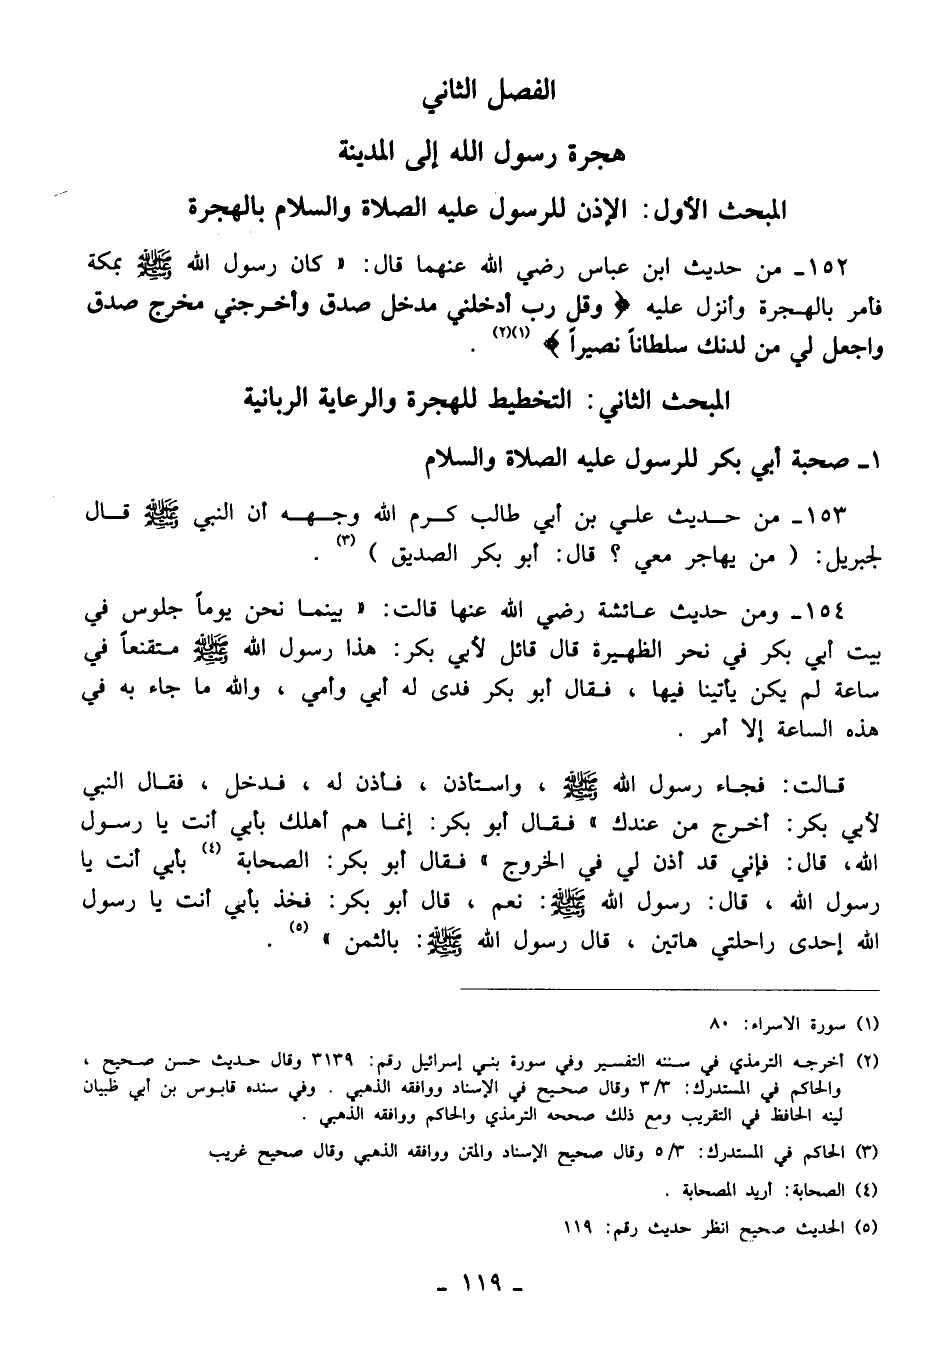 الفصل الثاني
هجرة رسول الله إلى المدينة
المبحث الأول: الإذن للرسول عليه الصلاة والسلام بالهجرة
١٥٢ـ من حديث ابن عباس رضي الله عنهما قال: « كان رسول الله ﷺ بمكة
فأمر بالهجرة وأنزل عليه ﴿ وقل رب أدخلني مدخل صدق وأخرجني مخرج صدق
واجعل لي من لدنك سلطاناً نصيراً ﴾ (١)(٢) .
المبحث الثاني: التخطيط للهجرة والرعاية الربانية
١ـ صحبة أبي بكر للرسول عليه الصلاة والسلام
١٥٣ـ من حديث علي بن أبي طالب كرم الله وجهه أن النبي ﷺ قال
لجبريل: ( من يهاجر معي ؟ قال: أبو بكر الصديق ) (٣) .
١٥٤ـ ومن حديث عائشة رضي الله عنها قالت: « بينما نحن يوماً جلوس في
بيت أبي بكر في نحر الظهيرة قال قائل لأبي بكر: هذا رسول الله ﷺ متقنعاً في
ساعة لم يكن يأتينا فيها ، فقال أبو بكر فدى له أبي وأمي ، والله ما جاء به في
هذه الساعة إلا أمر .
قالت: فجاء رسول الله ﷺ ، واستأذن ، فأذن له ، فدخل ، فقال النبي
لأبي بكر: أخرج من عندك » فقال أبو بكر: إنما هم أهلك بأبي أنت يا رسول
الله، قال: فإني قد أذن لي في الخروج » فقال أبو بكر: الصحابة (٤) بأبي أنت يا
رسول الله ، قال: رسول الله ﷺ: نعم ، قال أبو بكر: فخذ بأبي أنت يا رسول
الله إحدى راحلتي هاتين ، قال رسول الله ﷺ: بالثمن » (٥) .
(١) سورة الاسراء: ٨٠
(٢) أخرجه الترمذي في سننه التفسير وفي سورة بني إسرائيل رقم: ٣١٣٩ وقال حديث حسن صحيح ،
والحاكم في المستدرك: ٣/٣ وقال صحيح في الإسناد ووافقه الذهبي . وفي سنده قابوس بن أبي ظبيان
لينه الحافظ في التقريب ومع ذلك صححه الترمذي والحاكم ووافقه الذهبي .
(٣) الحاكم في المستدرك: ٥/٣ وقال صحيح الإسناد والمتن ووافقه الذهبي وقال صحيح غريب
(٤) الصحابة: أريد المصحابة .
(٥) الحديث صحيح انظر حديث رقم: ١١٩
ـ ١١٩ ـ